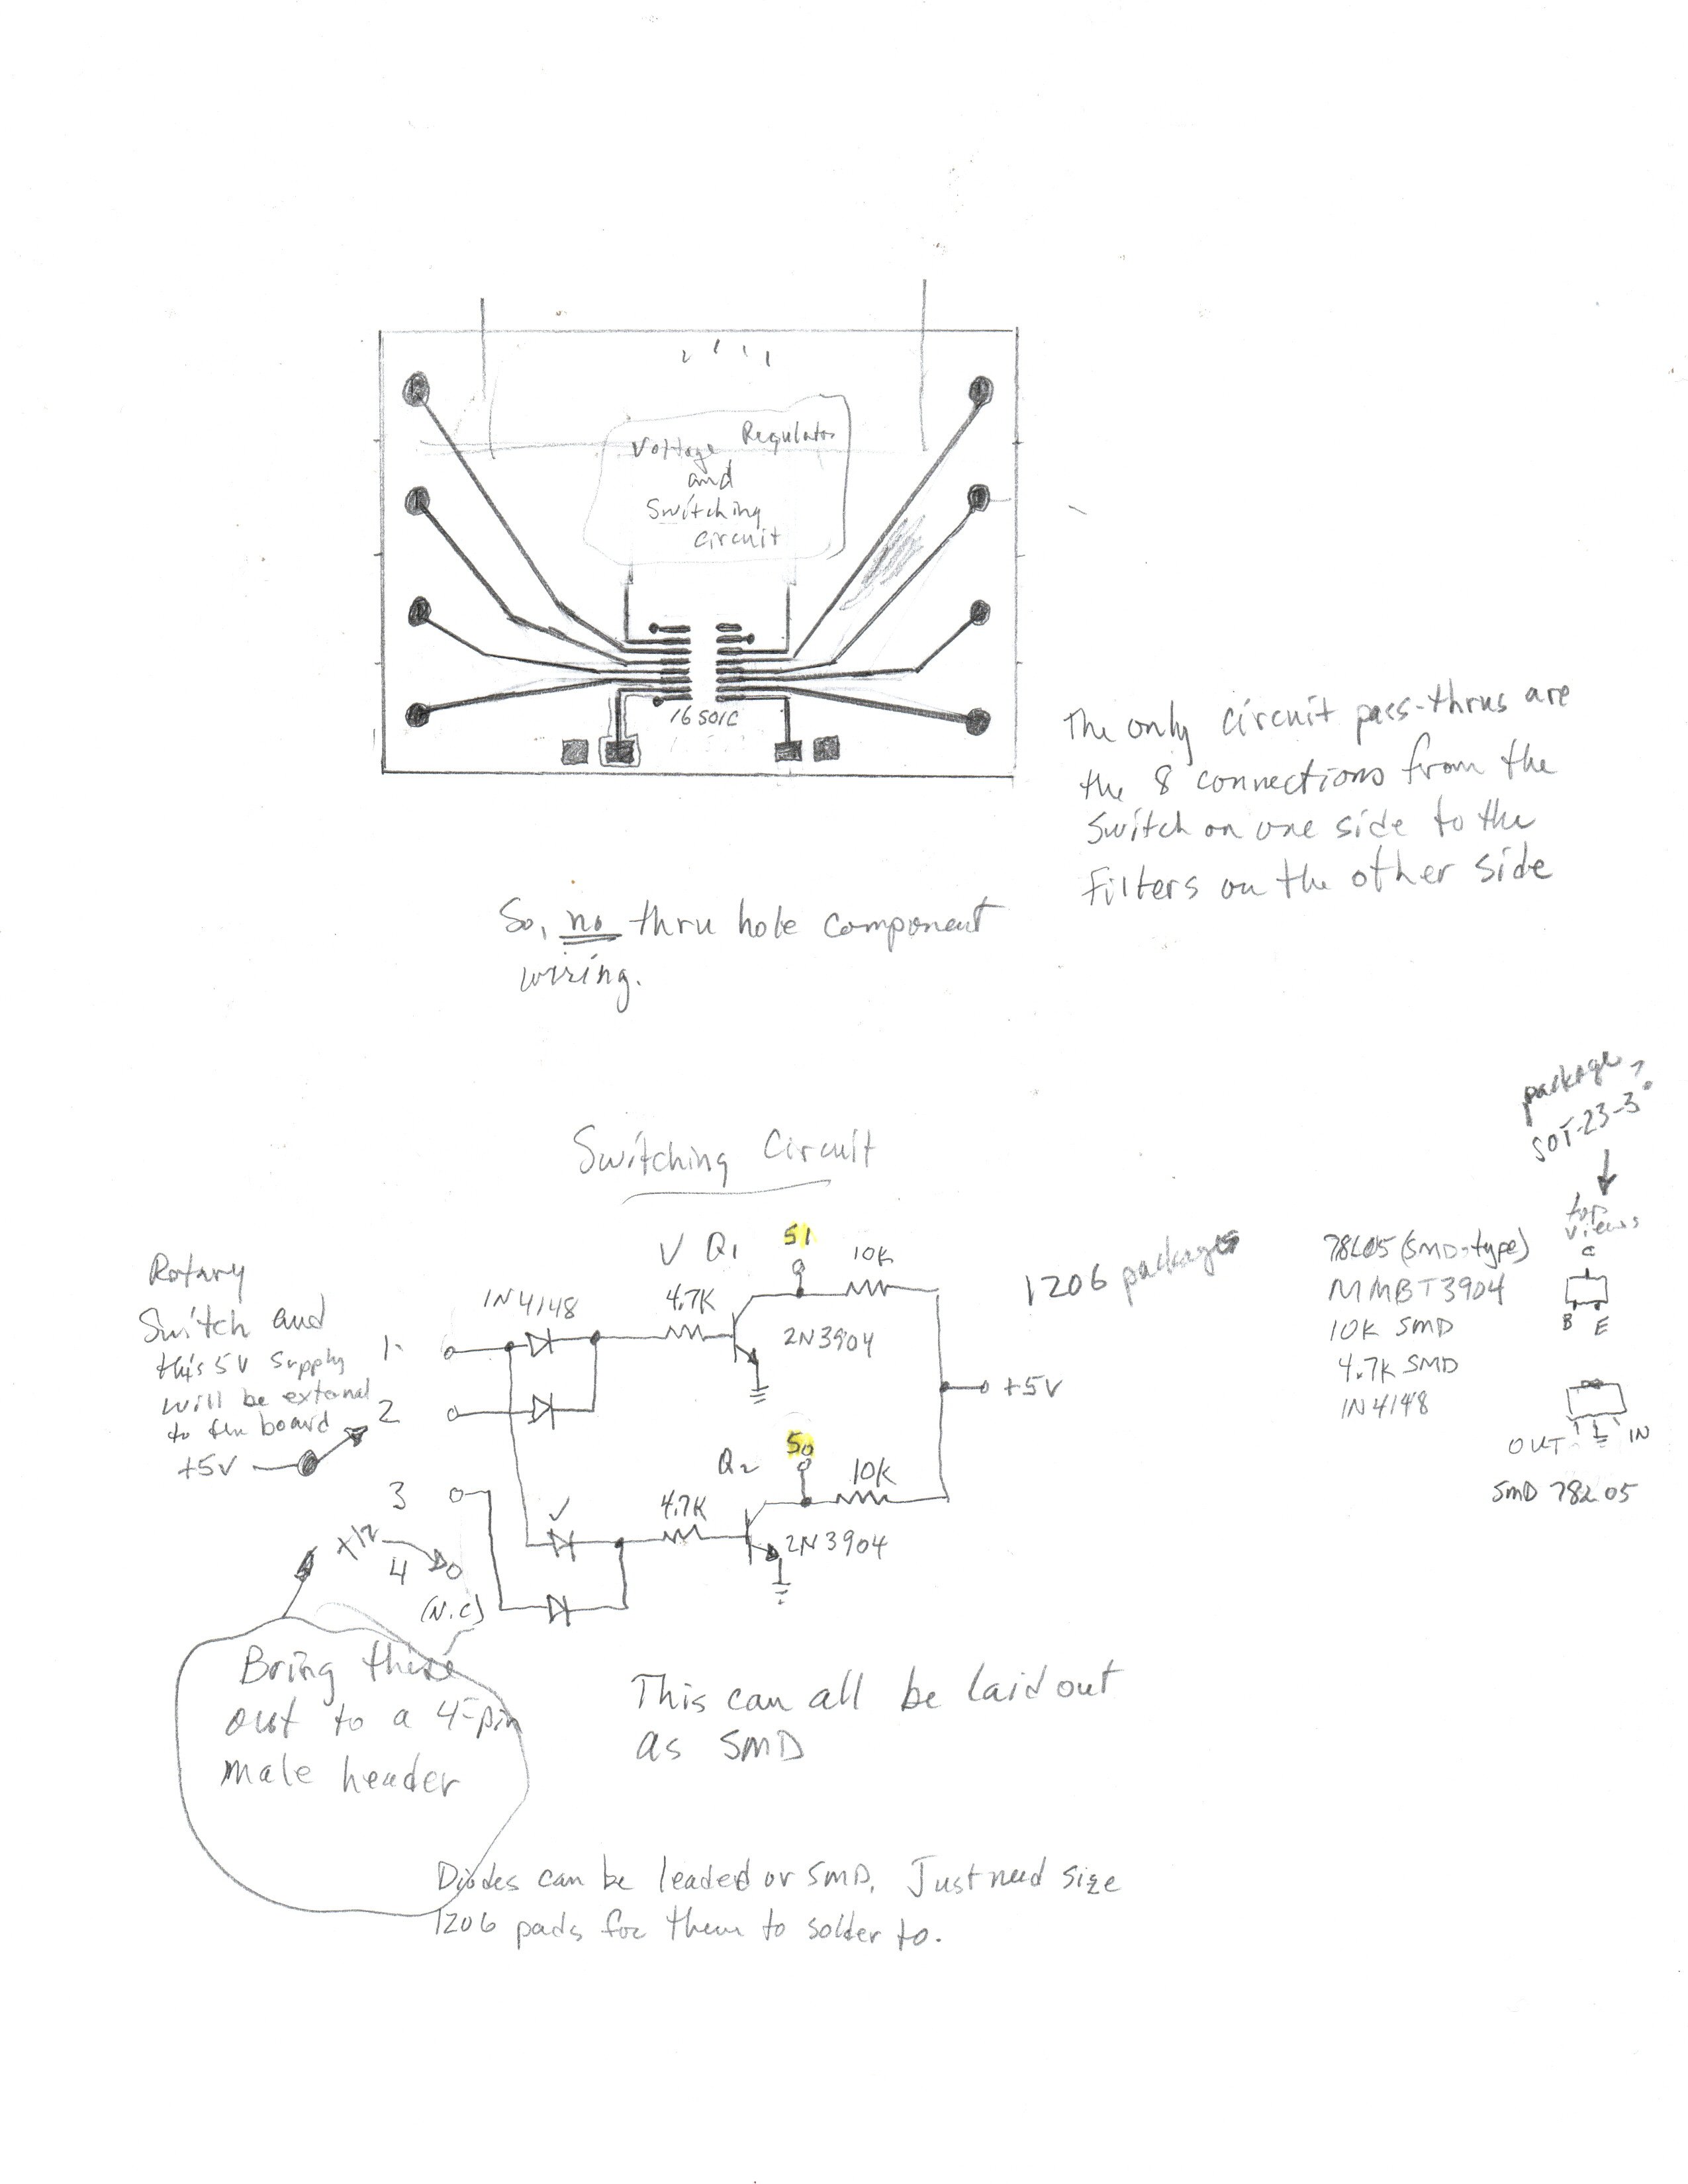 Voltage Regulator
and
Switching
circuit
16 SOIC
The only circuit pass-thrus are
the 8 connections from the
Switch on one side to the
Filters on the other side
So, no thru hole component
wiring.
package?
SOT-23-3
top
views
Switching Circuit
Rotary
Switch and
this 5V supply
will be external
to the board
+5V
1
2
3
4
+12
(N.C)
1N4148
4.7K
V Q1
S1
10K
2N3904
+5V
Q2
S0
10K
4.7K
2N3904
1206 packages
78L05 (SMD-type)
MMBT3904
10K SMD
4.7K SMD
1N4148
C
B E
OUT IN
SMD 78L05
Bring these
out to a 4-pin
male header
This can all be laid out
as SMD
Diodes can be leaded or SMD. Just need size
1206 pads for them to solder to.